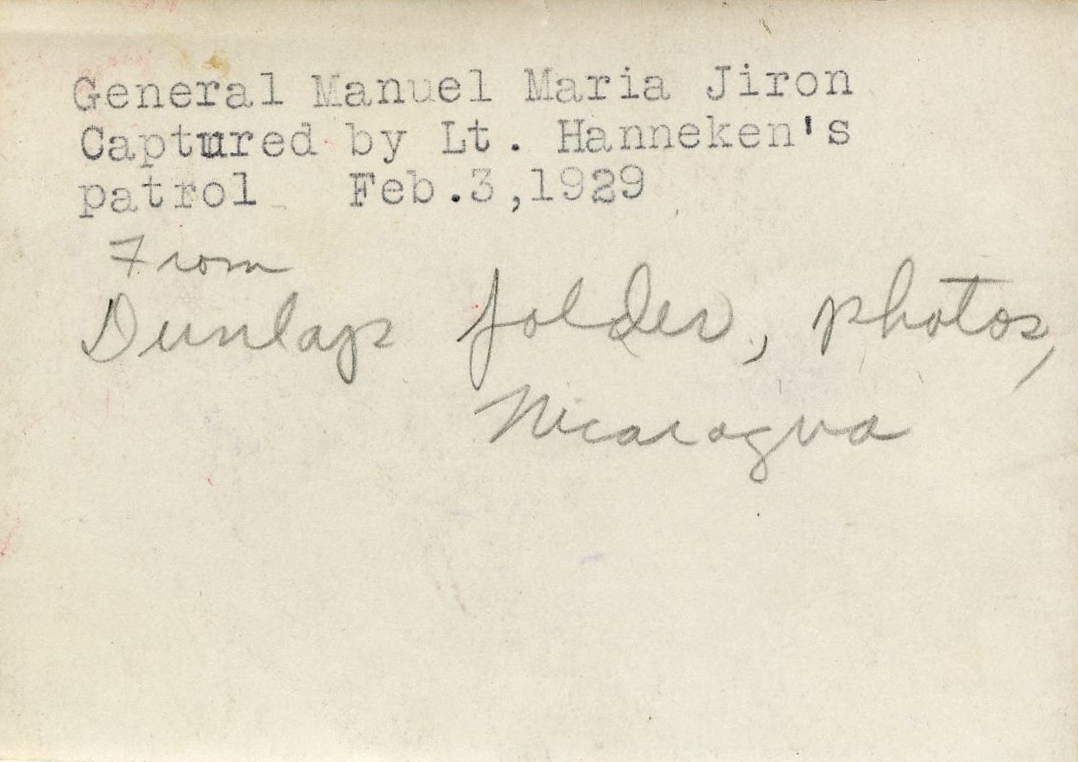 General Manuel Maria Jiron
Captured by Lt. Hanneken's
patrol Feb.3,1929
From
Dunlap folder, photos,
Nicaragua